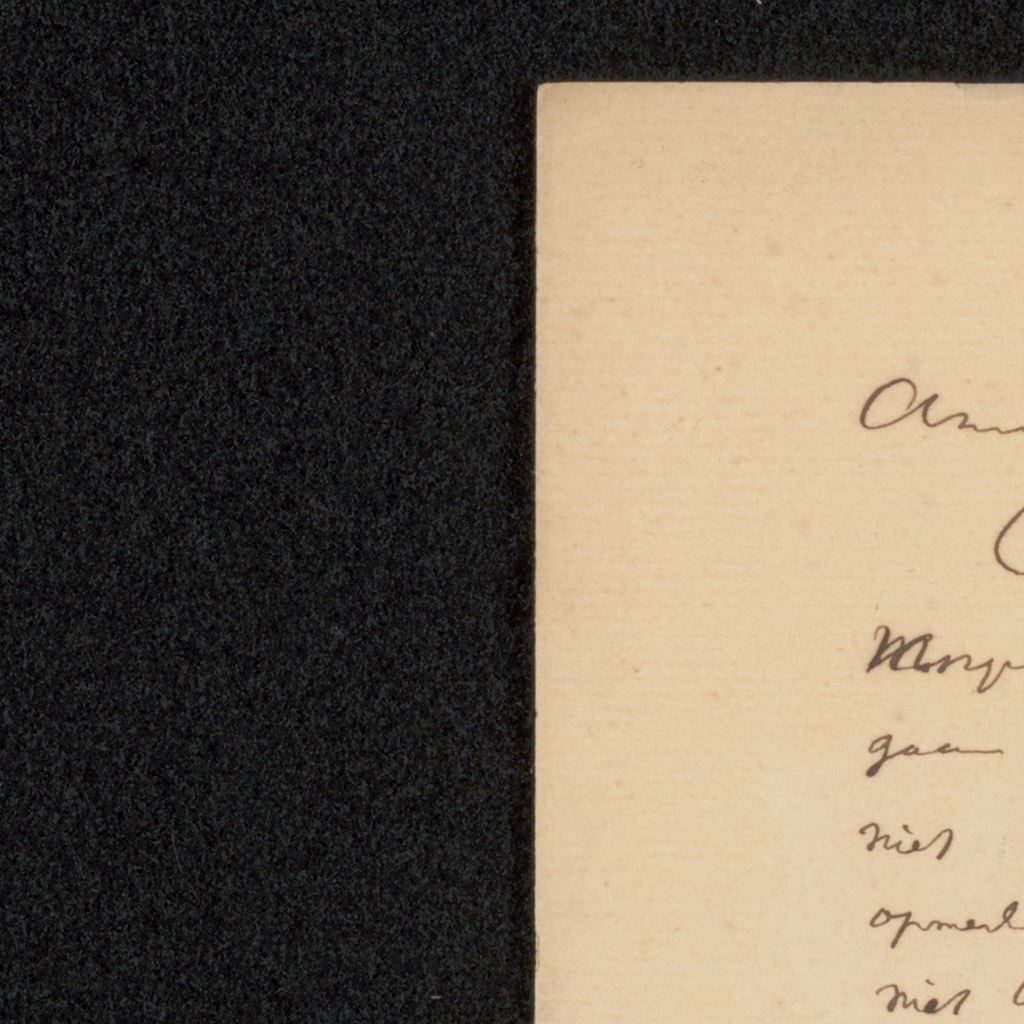 Am
Morge
gaan
niet
opmerk
niet